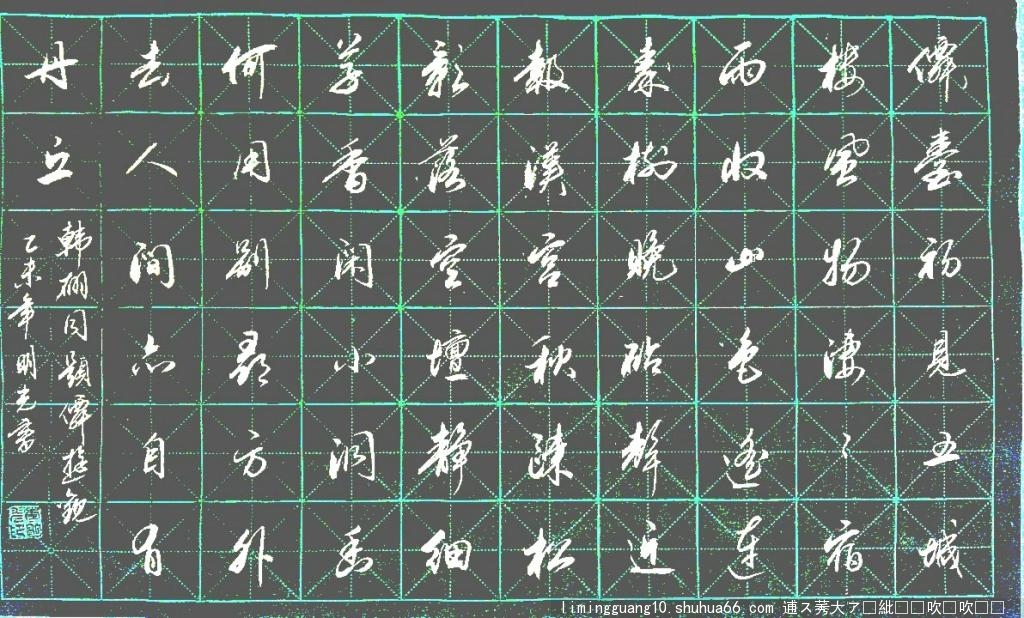 僊臺初見五城
樓風物淒々宿
雨收山色遙連
秦樹晚砧聲近
報漢宮秋疎松
影落空壇靜細
草香閑小洞幽
何用別尋方外
去人間亦自有
丹丘
韓翃同題僊遊觀
乙未年明光書
limingguang10.shuhua66.com